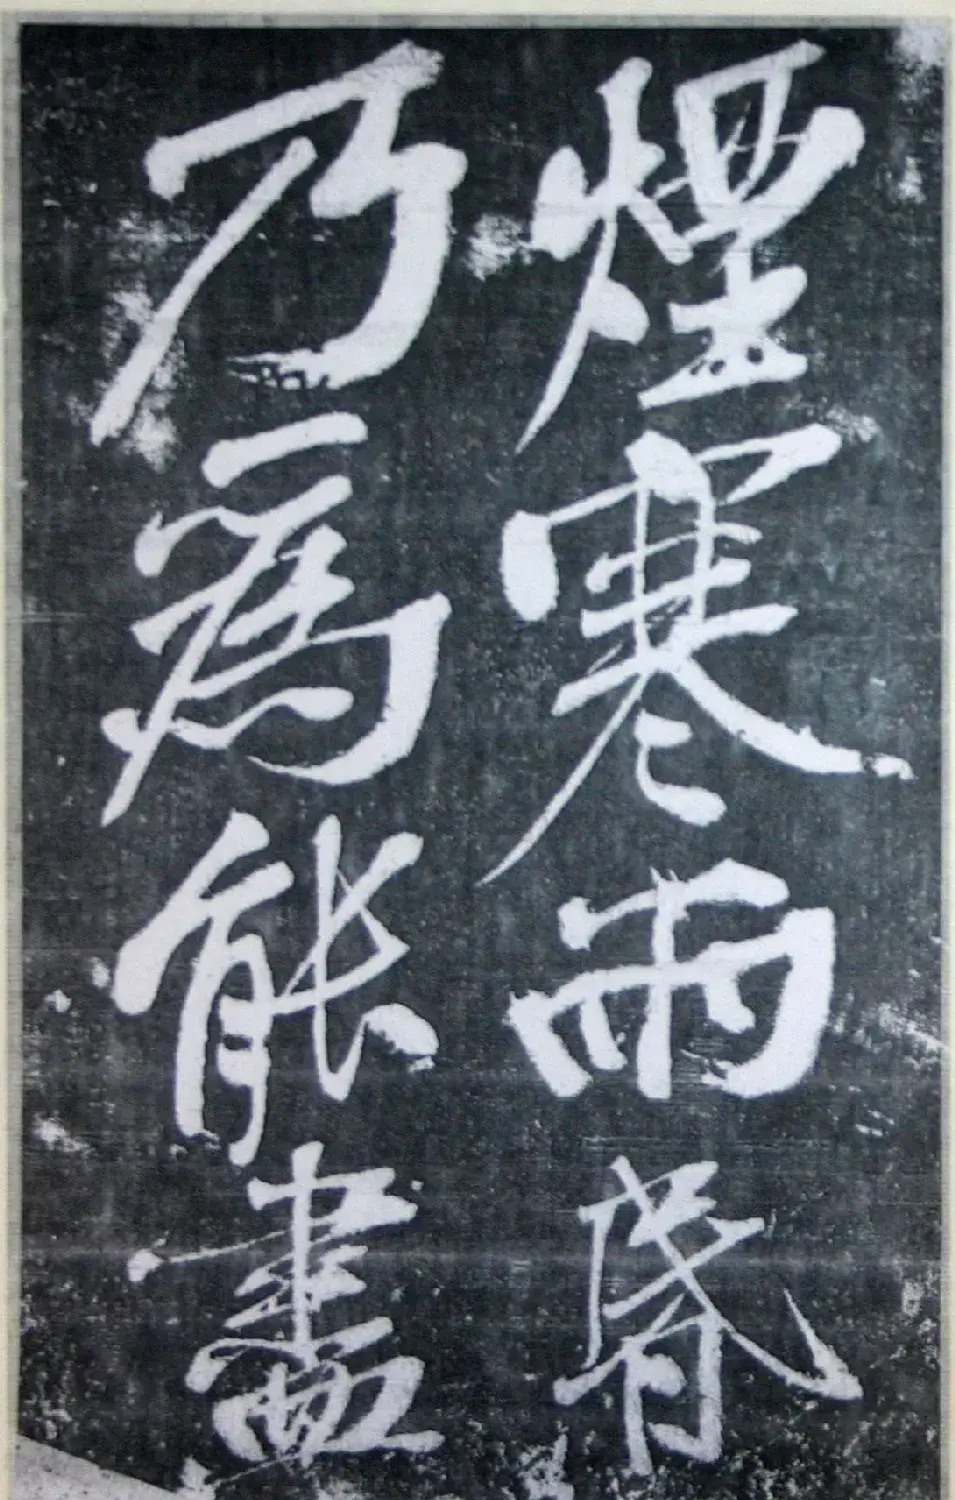 煙寒雨昏
乃為能畫